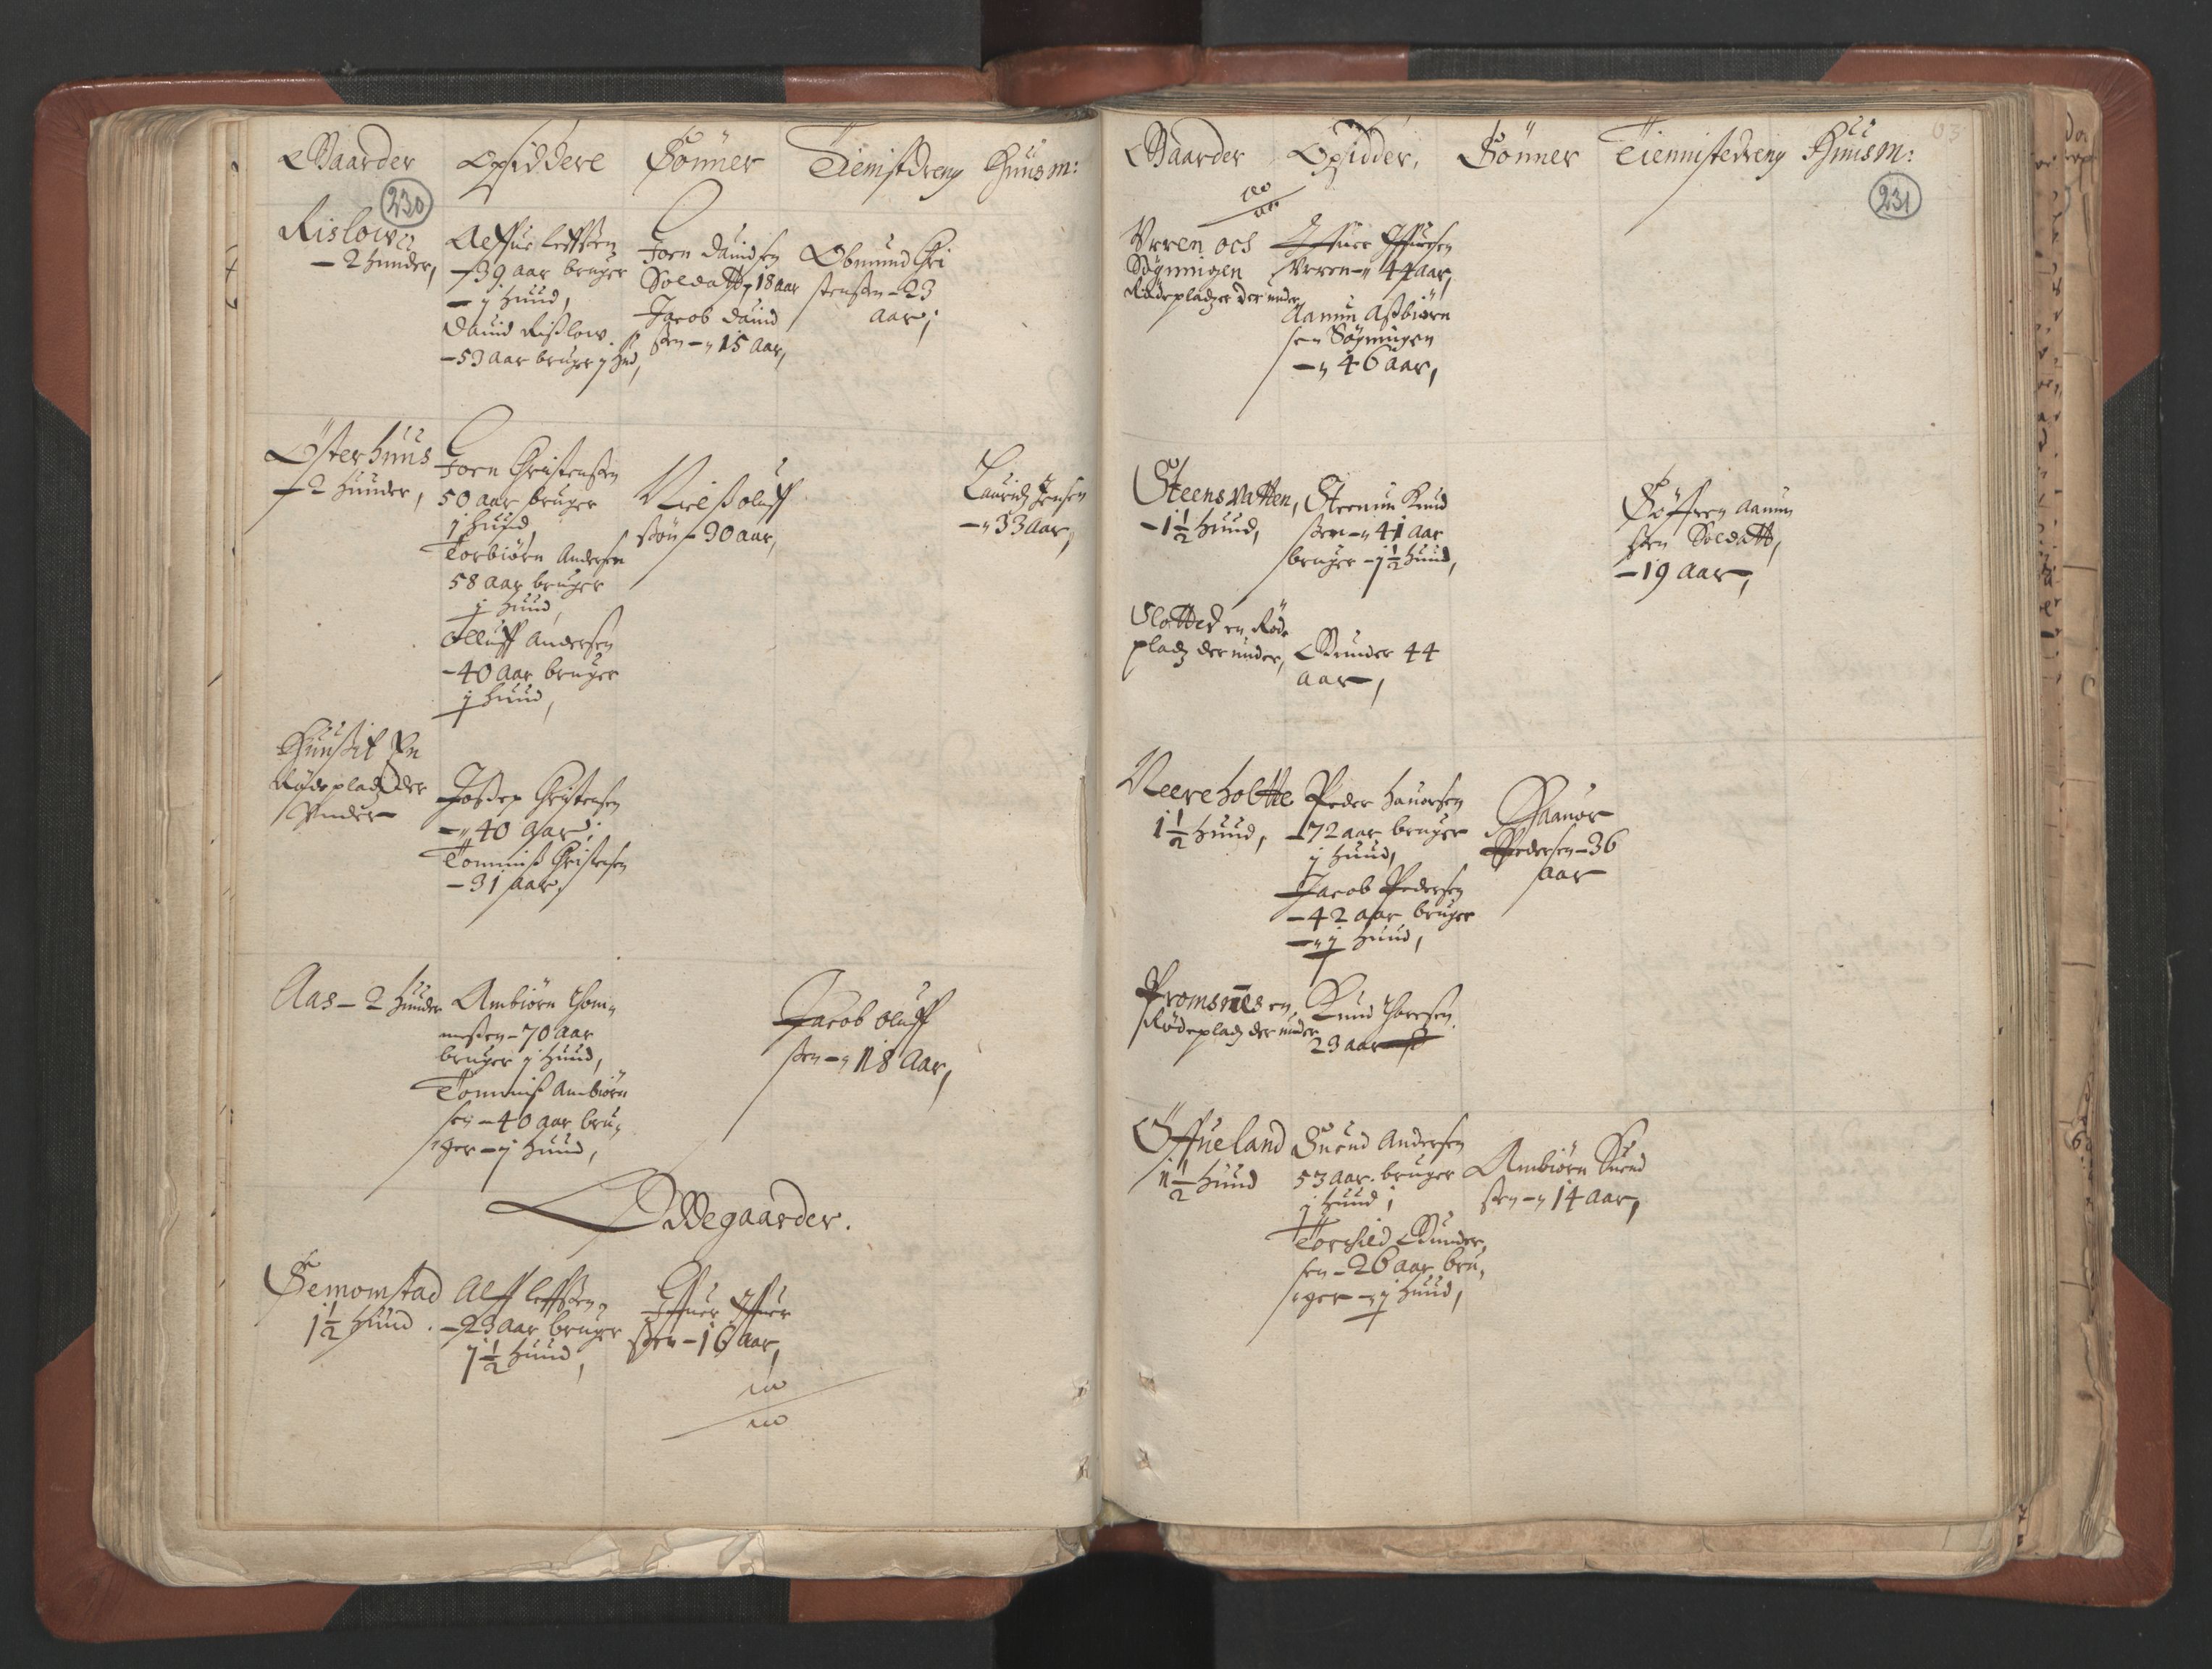 Gaarder Opsiddere Sönner Tienistdreng Huusm:
230
Rislow
– 2 hunder,
Alffue Leffsen
– 39 aar bruger
– j huud,
Dauid Rißlow
– 53 aar bruger j hud,
Joen Dauidsen
Soldatt, 18 aar
Jacob Dauid
sen – 15 aar,
Obmund Chri
stensen – 23
aar,
Österhuus
– 2 huuder,
Joen Christensen
50 aar bruger
j huud,
Torbiörn Andersen
58 aar bruger
j huud,
Olluff Andersen
– 40 aar bruger
j huud,
Nielß Oluff
sön – 30 aar,
Lauridz Jensen
– 33 aar,
En
Rödepladz der
Vnder
Joßep Christensen
– 40 aar,
Tommiß Christensen
– 31 aar,
Aas – 2 huuder
Ambiörn Thom
meßen – 70 aar
bruger j huud,
Tommiß Ambiörn
sen – 40 aar bru
ger – j huud,
Jacob Oluff
sen – 18 aar,
Ödegaarder.
Semomstad
1½ huud.
Alff Leffsen
– 23 aar bruger
1½ huud,
Iffuer Iffuer
sen – 16 aar,
Gaarder Opsidder, Sönner Tiennistedreng Huusm:
231
Vrren och
Söynnigen
Rödepladzer der under
Iffuer Iffuersen
Vrren – 44 aar,
Aanun Aßbiörn
sen Söynnigen
– 46 aar,
Steensvatten,
– 1½ huud,
Steenun Knud
sen – 41 aar
bruger – 1½ huud,
Söffren Aanun
sen Soldatt,
– 19 aar,
Slotted en Röde
pladz der under,
Gunder 44
aar,
Neereholtte
1½ huud,
Peder Hauorsen
– 72 aar bruger
j huud,
Jacob Pedersen
– 42 aar bruger
– j huud,
Haauor
Pedersen – 36
aar
Promsnes en
Rödepladz der under
Knud Thoresen
23 aar
Öffueland
1½ huud
Suend Andersen
53 aar bruger
j huud,
Torchild Gunder
sen – 26 aar bru
ger – j huud,
Ambiörn Suend
sen – 14 aar,